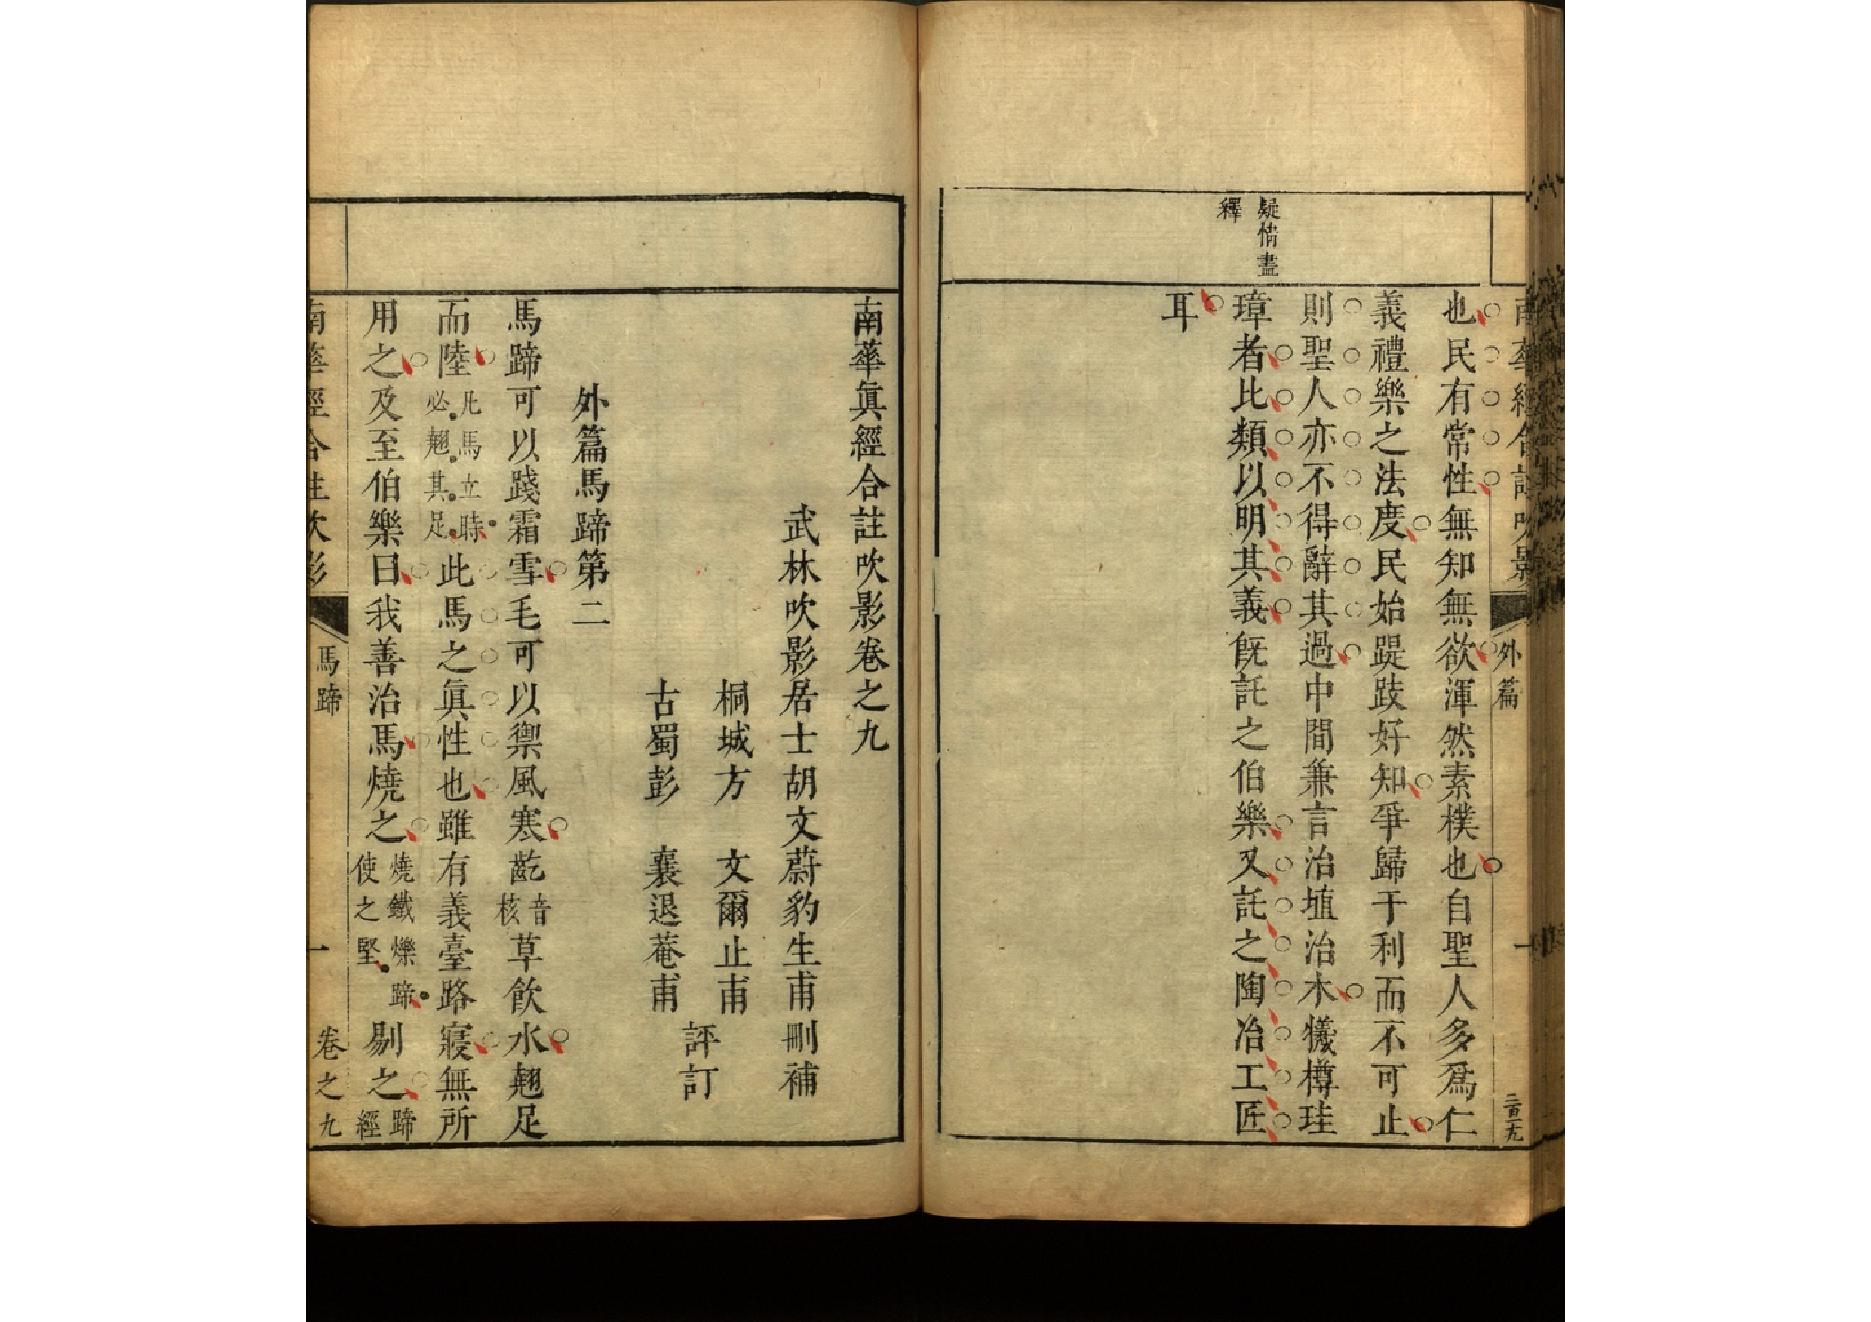 南華經合註吹影
外篇
一
二百十九
疑情盡
釋
也民有常性無知無欲渾然素樸也自聖人多爲仁
義禮樂之法度民始踶跂好知爭歸于利而不可止
則聖人亦不得辭其過中間兼言治埴治木犧樽珪
璋者比類以明其義旣託之伯樂又託之陶冶工匠
耳
南華眞經合註吹影卷之九
武林吹影居士胡文蔚豹生甫刪補
桐城方　文爾止甫
古蜀彭　襄退菴甫
評訂
外篇馬蹄第二
馬蹄可以踐霜雪毛可以禦風寒齕音核草飲水翹足
而陸凡馬立時必翹其足此馬之眞性也雖有義臺路寢無所
用之及至伯樂曰我善治馬燒之燒鐵爍蹄使之堅剔之蹄經
南華經合註吹影
馬蹄
一
卷之九